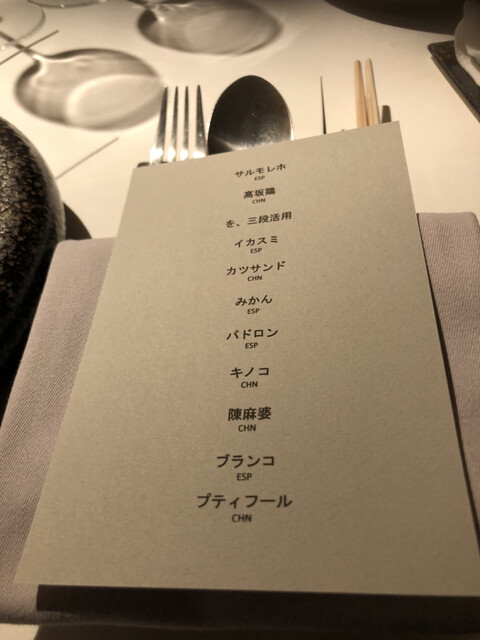 サルモレホ
ESP
高坂鶏
CHN
を、三段活用
イカスミ
ESP
カツサンド
CHN
みかん
ESP
パドロン
ESP
キノコ
CHN
陳麻婆
CHN
ブランコ
ESP
プティフール
CHN